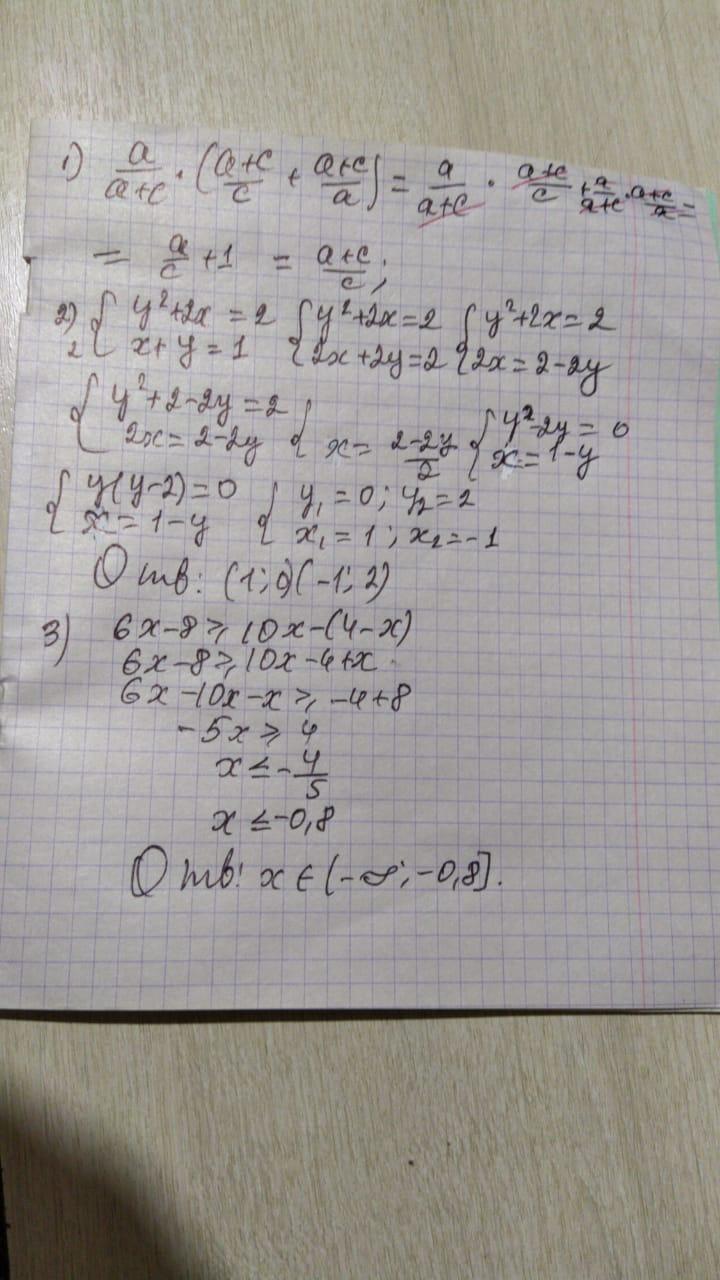 1) a/(a+c) · ((a+c)/c + (a+c)/a) = a/(a+c) · (a+c)/c + a/(a+c) · (a+c)/a =
= a/c + 1 = (a+c)/c;
2) { y²+2x = 2 { y²+2x = 2 { y²+2x = 2
2 { x+y = 1 { 2x+2y = 2 { 2x = 2-2y
{ y²+2-2y = 2 { { y²-2y = 0
{ 2x = 2-2y { x = (2-2y)/2 { x = 1-y
{ y(y-2) = 0 { y₁ = 0; y₂ = 2
{ x = 1-y { x₁ = 1; x₂ = -1
Отв: (1; 0)(-1; 2)
3) 6x-8 ⩾ 10x-(4-x)
6x-8 ⩾ 10x-4+x
6x-10x-x ⩾ -4+8
-5x ⩾ 4
x ≤ -4/5
x ≤ -0,8
Отв: x ∈ (-∞; -0,8].